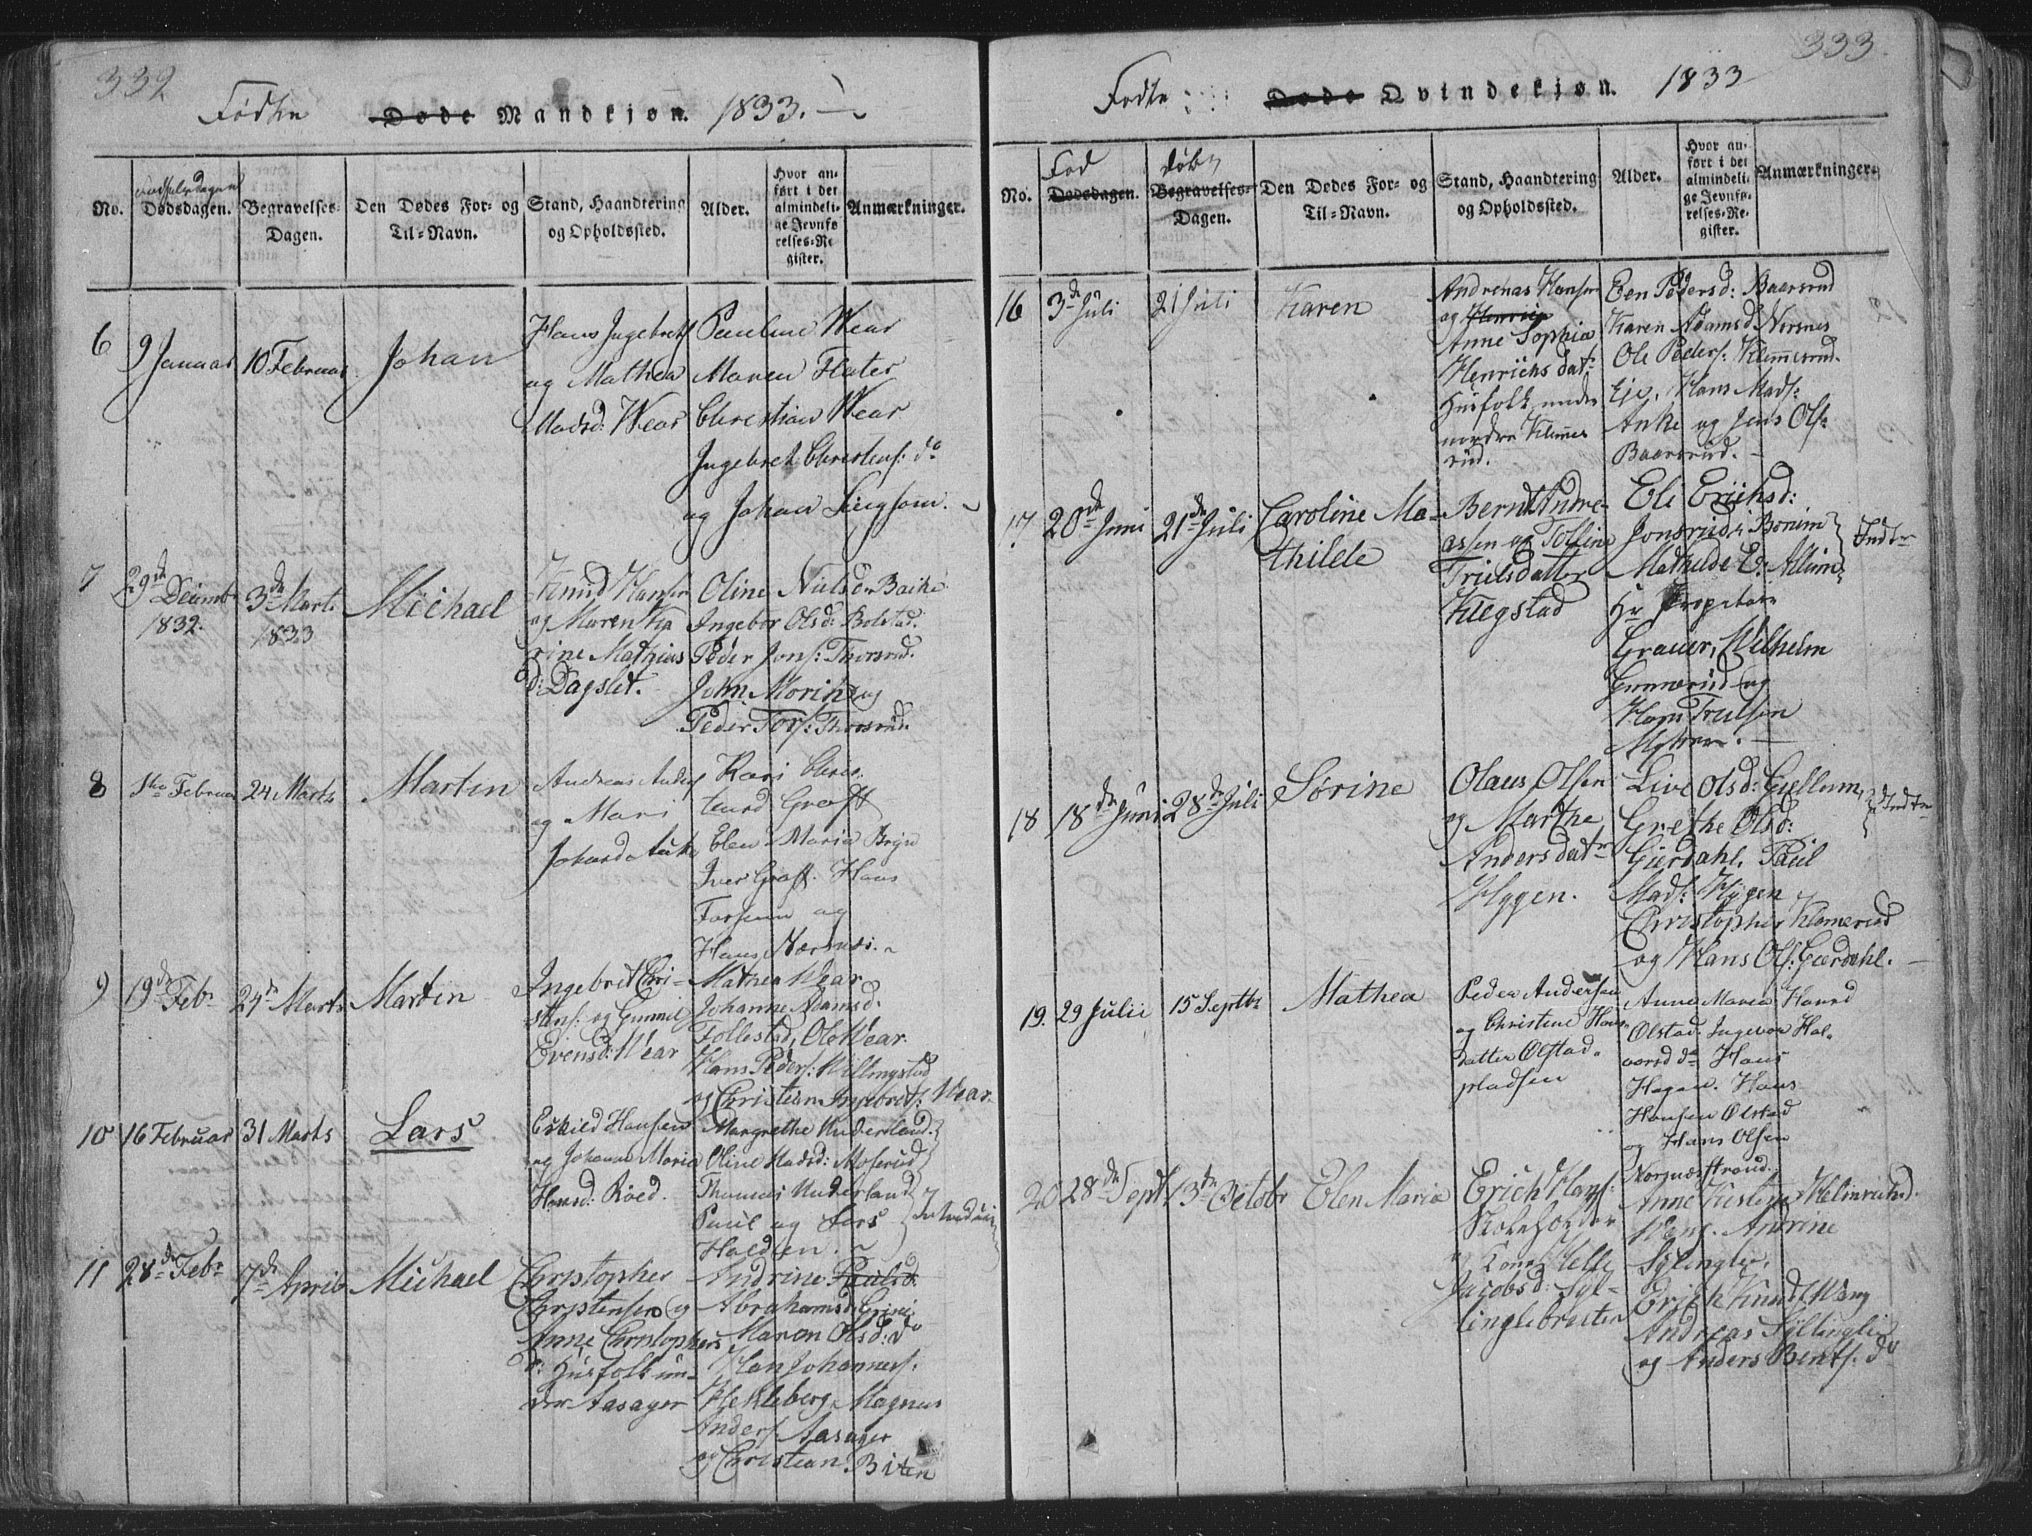 332
Fødte Døde Mandkjøn. 1833.
No.
Fødselsdagen
Dødsdagen.
Begravelses-
Dagen.
Den Dødes For- og
Til-Navn.
Stand, Haandtering
og Opholdssted.
Alder.
Hvor an-
ført i det
almindeli-
ge Jevnfø-
relses-Re-
gister.
Anmærkninger.
6
9 Januar
10 Februar
Johan
Hans Ingebrets
og Mathea
Madsd: Wear
Pauline Wear
Maren Flater
Christian Wear
Ingebret Christens: do
og Johan
7
29de Decembr
1832.
3de Marts
1833
Michael
Knud Hansen
og Maren Ka
rine Mathias
d: Dagslet.
Oline Nielsdr Baike
Ingebor Olsd: Bolstad.
Peder Jons: Thorsrud.
John Morin og
Peder Tors: Thorsrud.
8
1ste Februar
24 Marts
Martin
Andreas Anders
og Mari
Johansd
Kari Chris-
tensd Graff
Elen Maria Bryn
Iver Graff. Hans
og
Hans Nærsnæs.
9
19de Febr
24de Marts
Martin
Ingebret Chri-
stens: og Gunnil
Evensd: Wear
Mathea Wear
Johanne Adamsd.
Follestad, Ole Wear.
Hans Peders: Villingstad
og Christian Ingebrets: Wear.
10
16 Februar
31 Marts
Lars
Eskild Hansen
og Johanne Maria
Hansd: Röed.
Margrethe Underland.
Oline Madsd: Moserud
Thomas Underland
Paul og Lars
Halden.
11
28de Febr
7de April
Michael
Christopher
Christensen og
Anne Christophers
d: Husfolk un-
der Aasager
Andrine Paulsd.
Abrahamsd: Grini
Maren Olsd: do
Han Johannes.
Hekleberg, Magnus
Anders Aasager
og Christian Biten
333
Fødte Døde Qvindekjøn. 1833
No.
Fød
Dødsdagen.
døbt
Begravelses-
Dagen.
Den Dødes For- og
Til-Navn.
Stand, Haandtering
og Opholdssted.
Alder.
Hvor an-
ført i det
almindeli-
ge Jevnfø-
relses-Re-
gister.
Anmærkninger.
16
3de Juli
21 Juli
Karen
Andreas Hansen
og Henrig
Anne Sophia
Henrichs datr
Husfolk under
nordre Klemes
rud.
Een Pedersd: Baarsrud
Karen Adamsd Nersnes
Ole Peders: Klemesrud
Eje, Hans Mads:
Anke og Jens Ols:
Baarsrud.
17
20de Juni
21de Juli
Caroline Ma-
thilde
Bernt Andre-
assen og Tolline
Trulsdatter
Klegstad
Eli Erichsd:
Jonsrud,
Mathilde
Hr Propitair
Grauer, Wilhelm
Gunnerud og
Hans Trulsen
18
18de Juni
28de Juli
Sørine
Olaus Olsen
og Marthe
Andersdatr
Hyggen.
Live Olsd: Gjellum,
Grethe Olsd:
Gjerdahl. Paul
Mads: Hyggen
Christopher Klemesrud
og Hans Ols: Gjerdahl.
19.
29 Julii
15 Septbr
Mathea
Peder Andersen
og Christine Hans-
datter Ølstad-
pladsen
Anne Maria Hansd
Ølstad. Ingebor Hal-
vorsd do Hans
Hagen. Hans
Hansen Ølstad
og Hans Olsen
Nærsnæsstrand.
20
28de Sept
13de Octobr
Elen Maria
Erich Hans:
Skoleholder
og Kone Helle
Jacobsd: Syl-
lingebraaten
Anne Kirstine
Wang. Andrine
Syllinglie.
Erich Knuds Wang
Andreas Syllinglie
og Anders Bents: do